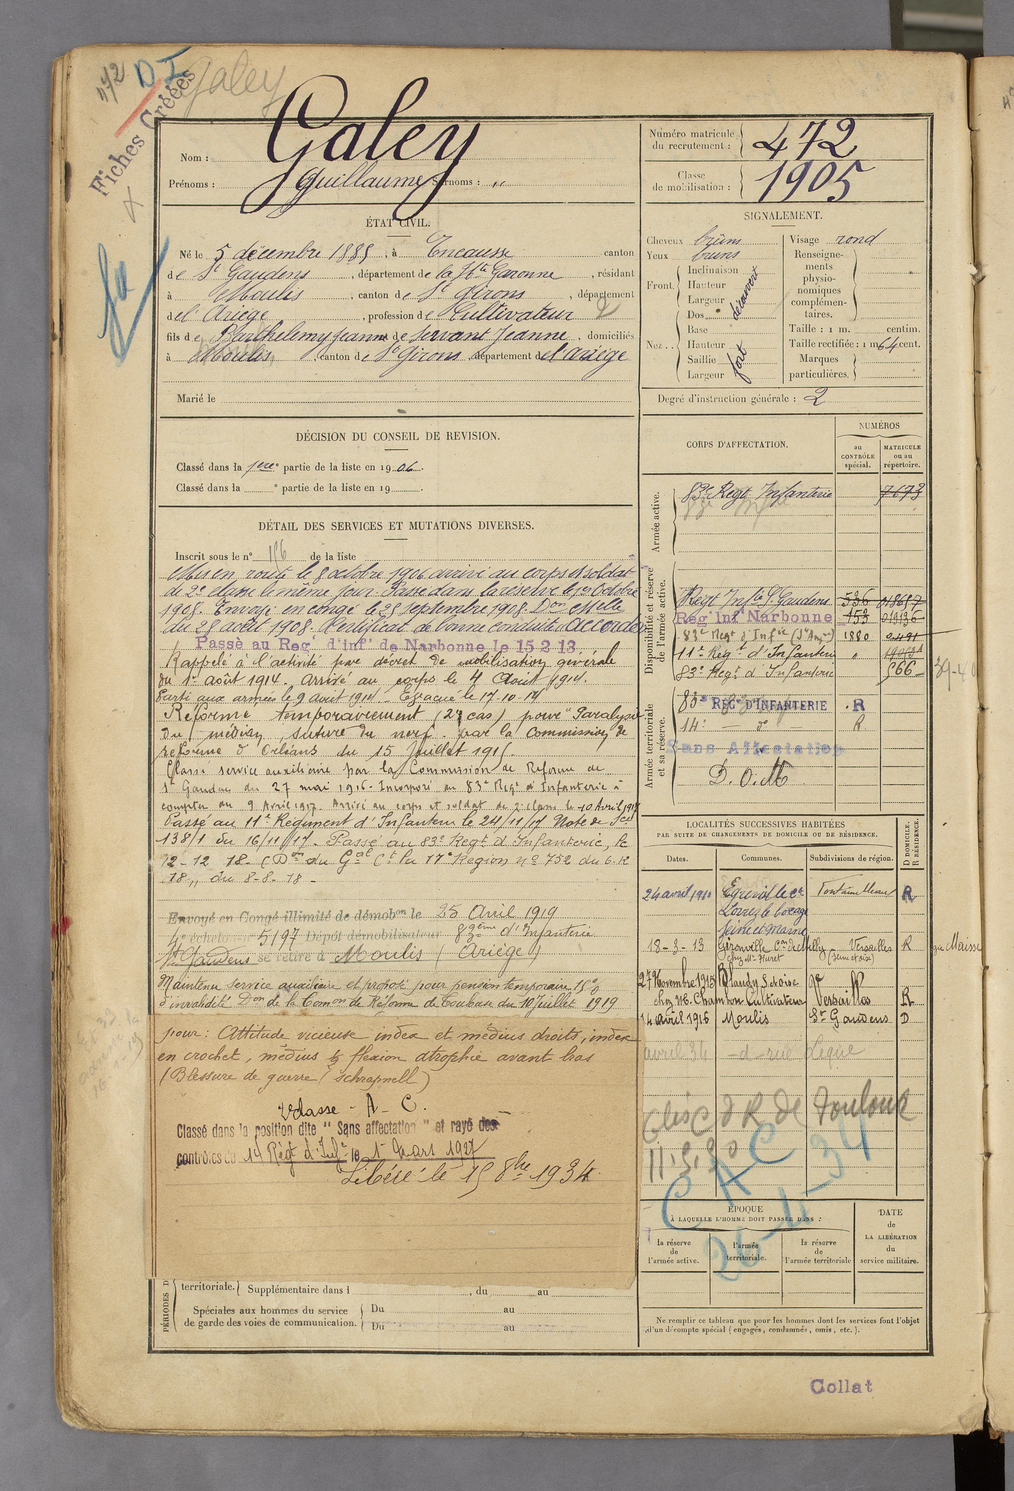 472
D I
Galey
Fiches Créées
Nom : Galey
Prénoms : Guillaume Surnoms : „
Numéro matricule du recrutement : 472
Classe de mobilisation : 1905
ÉTAT CIVIL.
Né le 5 décembre 1885, à Encausse canton
de St Gaudens, département de la Hte Garonne, résidant
à Moulis, canton de St Girons, département
de l'Ariège, profession de Cultivateur
fils de Barthelemy Jeanne et de Servant Jeanne, domiciliés
à Moulis, canton de St Girons, département de l'Ariège
Marié le
SIGNALEMENT.
Cheveux bruns
Yeux bruns
Front. Inclinaison
Hauteur
Largeur
découvert
Nez. Dos
Base
Hauteur
Saillie
Largeur
fort
Visage rond
Renseignements physionomiques complémentaires.
Taille : 1 m. centim.
Taille rectifiée : 1 m 64 cent.
Marques particulières.
Degré d'instruction générale : 2
DÉCISION DU CONSEIL DE REVISION.
Classé dans la 1ere partie de la liste en 1906.
Classé dans la e partie de la liste en 19
DÉTAIL DES SERVICES ET MUTATIONS DIVERSES.
Inscrit sous le n° 186 de la liste
Mis en route le 8 octobre 1906 arrivé au corps et soldat
de 2e classe le même jour. Passé dans la réserve le 1er Octobre
1908. Envoyé en congé le 25 septembre 1908. Don Mlle
du 25 août 1908. Certificat de bonne conduite Accordé
Passé au Reg. d'inf. de Narbonne le 15 2 13
Rappelé à l'activité par décret de mobilisation générale
du 1er août 1914. Arrivé au corps le 4 Août 1914.
Parti aux armées le 9 août 1914. Evacué le 17-10-14
Réformé temporairement (2e cas) pour "Paralysie
du médian, suture du nerf. par la Commission de
réforme d'Orléans du 15 Juillet 1915.
Classé service auxiliaire par la Commission de Réforme de
St Gaudens du 27 mai 1916. Incorporé au 83e Regt d'Infanterie à
compter du 9 Avril 1917. Arrivé au corps et soldat de 2e classe le 10 Avril 1917
Passé au 11e Régiment d'Infanterie le 24/11/17 Note de Sce
138/1 du 16/11/17. Passé au 83e Regt d'Infanterie, le
12-12 18 - (Don du Gal Ct la 17e Région n° 752 du 6-12
18 „ du 8-8-18 -
Envoyé en Congé illimité de démobon le 25 Avril 1919
4e échelon n° 5197 Dépôt démobilisateur 83eme d'Infanterie
St Gaudens se retire à Moulis (Ariège)
Maintenu service auxiliaire et proposé pour pension temporaire 15%
d'invalidité Don de la Comon de Réforme de Toulouse du 10 Juillet 1919
pour : Attitude vicieuse index et médius droits, index
en crochet, médius ½ flexion atrophie avant bras
(Blessure de guerre (schrapnell)
2e classe - A - C.
Classé dans la position dite "Sans affectation" et rayé des
contrôles du 14 Régt d'Infie le 1er Mars 1927
Libéré le 15 8bre 1934.
CORPS D'AFFECTATION.
NUMÉROS
au CONTRÔLE spécial.
MATRICULE ou au répertoire.
Armée active.
83e Regt Infanterie 7673
Disponibilité et réserve de l'armée active.
Régt Infie St Gaudens 536 018657
Reg Inf Narbonne 153 013136
83e Regt d'Infie 1880 2491
11e Regt d'Infanterie „
83e Regt d'Infanterie 566
Armée territoriale et sa réserve.
83e REGt D'INFANTERIE R
14e do R
Sans Affectation
D. O. M.
LOCALITÉS SUCCESSIVES HABITÉES
PAR SUITE DE CHANGEMENTS DE DOMICILE OU DE RÉSIDENCE.
Dates. Communes. Subdivisions de région. D DOMICILE. R RÉSIDENCE.
24 avril 1910 Egreville Con Fontainebleau R
Lorrez le bocage
Seine et marne
18-3-13 Gironville Con de Milly Versailles R
chez Mr Huret (Seine et oise)
27 Novembre 1915 Blandy S. et oise Versailles R
chez Me Champion Cultivateur
14 avril 1916 Moulis St Gaudens D
avril 34
de Toulouse
C A C
26-4-34
ÉPOQUE
À LAQUELLE L'HOMME DOIT PASSER DANS :
la réserve de l'armée active.
l'armée territoriale.
la réserve de l'armée territoriale
DATE de LA LIBÉRATION du service militaire.
PÉRIODES D
territoriale. Supplémentaire dans l , du au
Spéciales aux hommes du service de garde des voies de communication.
Du au
Du au
Ne remplir ce tableau que pour les hommes dont les services font l'objet
d'un décompte spécial (engagés, condamnés, omis, etc.).
Collat